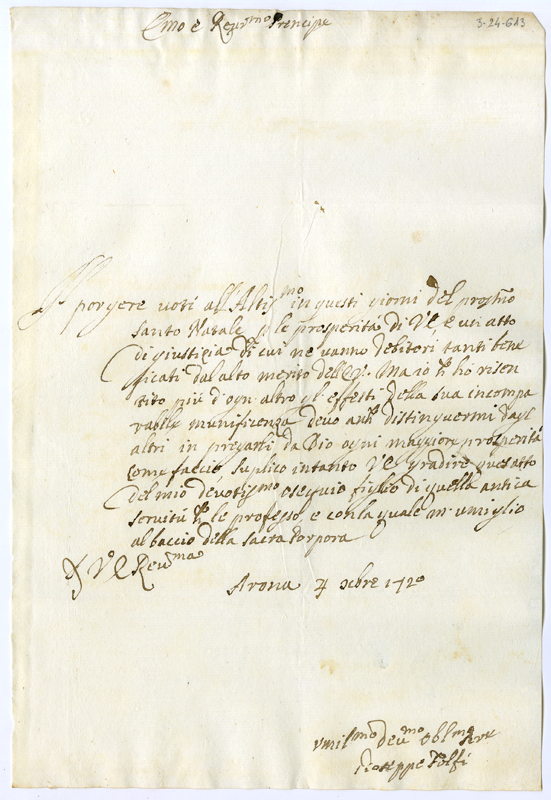 Emo e Reurmo Prencipe
3-24-613
Il porgere uoti all'Altismo in questi giorni del prossmo
Santo Natale p le prosperità di V E, e un atto
di giustizia di cui ne uanno debitori tanti bene
ficati dal alto merito dell'E V. Ma io ch ho risen
tito più d'ogni altro gl'effetti della sua incompa
rabile munificenza deuo anch distinguermi dagl
altri in pregarli da Dio ogni maggiore prosperità
come faccio suplico intanto V E gradire quest atto
del mio deuotismo ossequio figlio di quella antica
seruitù ch le professo, e con la quale m'umiglio
al baccio della Sacra Porpora
D V E Reurma
Arona 4 xbre 1720
Vmilmo deumo oblmo Serre
Gioseppe